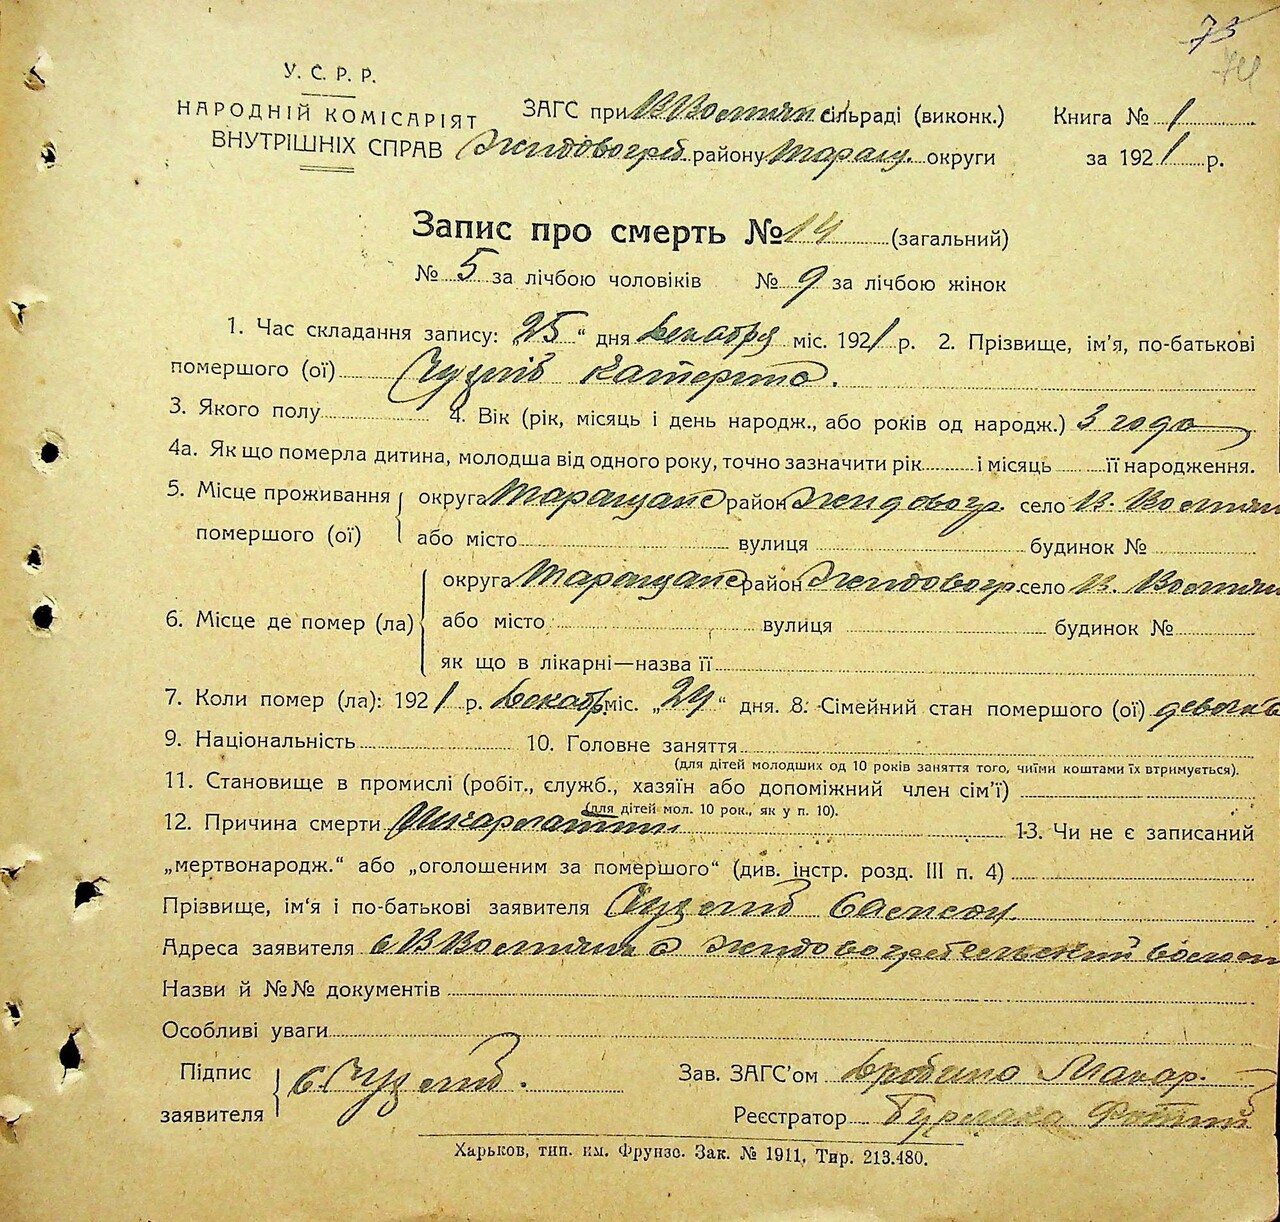 73
74
У. С. Р. Р.
НАРОДНІЙ КОМІСАРІЯТ
ВНУТРІШНІХ СПРАВ
ЗАГС при В Вовнян сільраді (виконк.)
Жидовогреб. району Таращ. округи
Книга № 1
за 1921 р.
Запис про смерть № 14 (загальний)
№ 5 за лічбою чоловіків № 9 за лічбою жінок
1. Час складання запису: 25 “ дня декабря міс. 1921 р. 2. Прізвище, ім'я, по-батькові
помершого (ої) Катерина.
3. Якого полу 4. Вік (рік, місяць і день народж., або років од народж.) 3 года
4а. Як що померла дитина, молодша від одного року, точно зазначити рік і місяць її народження.
5. Місце проживання помершого (ої)
округа Таращанс район Жидовогр. село В. Вовнян
або місто вулиця будинок №
6. Місце де помер (ла)
округа Таращанс район Жидовогр. село В. Вовнян
або місто вулиця будинок №
як що в лікарні—назва її
7. Коли помер (ла): 1921 р. декабр. міс. „24“ дня. 8. Сімейний стан помершого (ої)
9. Національність 10. Головне заняття
(для дітей молодших од 10 років заняття того, чиїми коштами їх втримується).
11. Становище в промислі (робіт., служб., хазяїн або допоміжний член сім'ї)
(для дітей мол. 10 рок., як у п. 10).
12. Причина смерти Шкарлатин 13. Чи не є записаний
„мертвонародж.“ або „оголошеним за помершого“ (див. інстр. розд. III п. 4)
Прізвище, ім'я і по-батькові заявителя
Адреса заявителя с В Вовнянка Жидовогребельський волост
Назви й №№ документів
Особливі уваги
Підпис заявителя
Зав. ЗАГС'ом Макар.
Реєстратор Бурлака Фотий
Харьков, тип. им. Фрунзе. Зак. № 1911. Тир. 213.480.